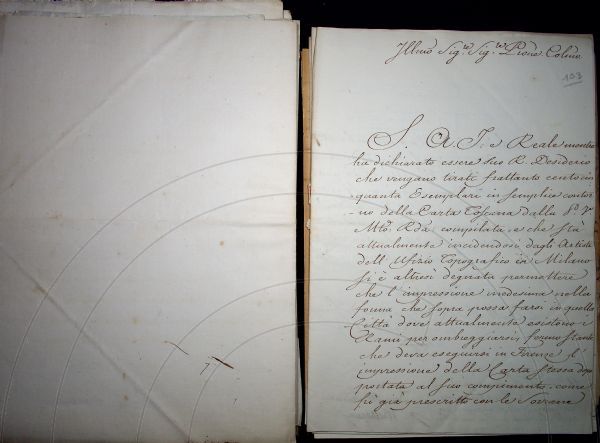 Illmo Sig.re Sig.re Prone Colmo
103
S. A. I. e Reale mentre
ha dichiarato essere suo R. Desiderio
che vengano tirati frattanto cento cin
quanta Esemplari in semplice contor
-no della Carta Toscana dalla
Mto. Rda. compilata, e che sta
attualmente incidendosi dagli Artisti
dell'Ufizio Topografico in Milano
si è altresì degnata permettere
che l'impressione medesima nella
forma che sopra possa farsi in quella
Città dove attualmente esistono i
Rami per ombreggiarsi, fermo stante
che deva eseguirsi in Firenze l'
impressione della Carta stessa dopo
portata al suo compimento, come
fù già prescritto con le Sovrane